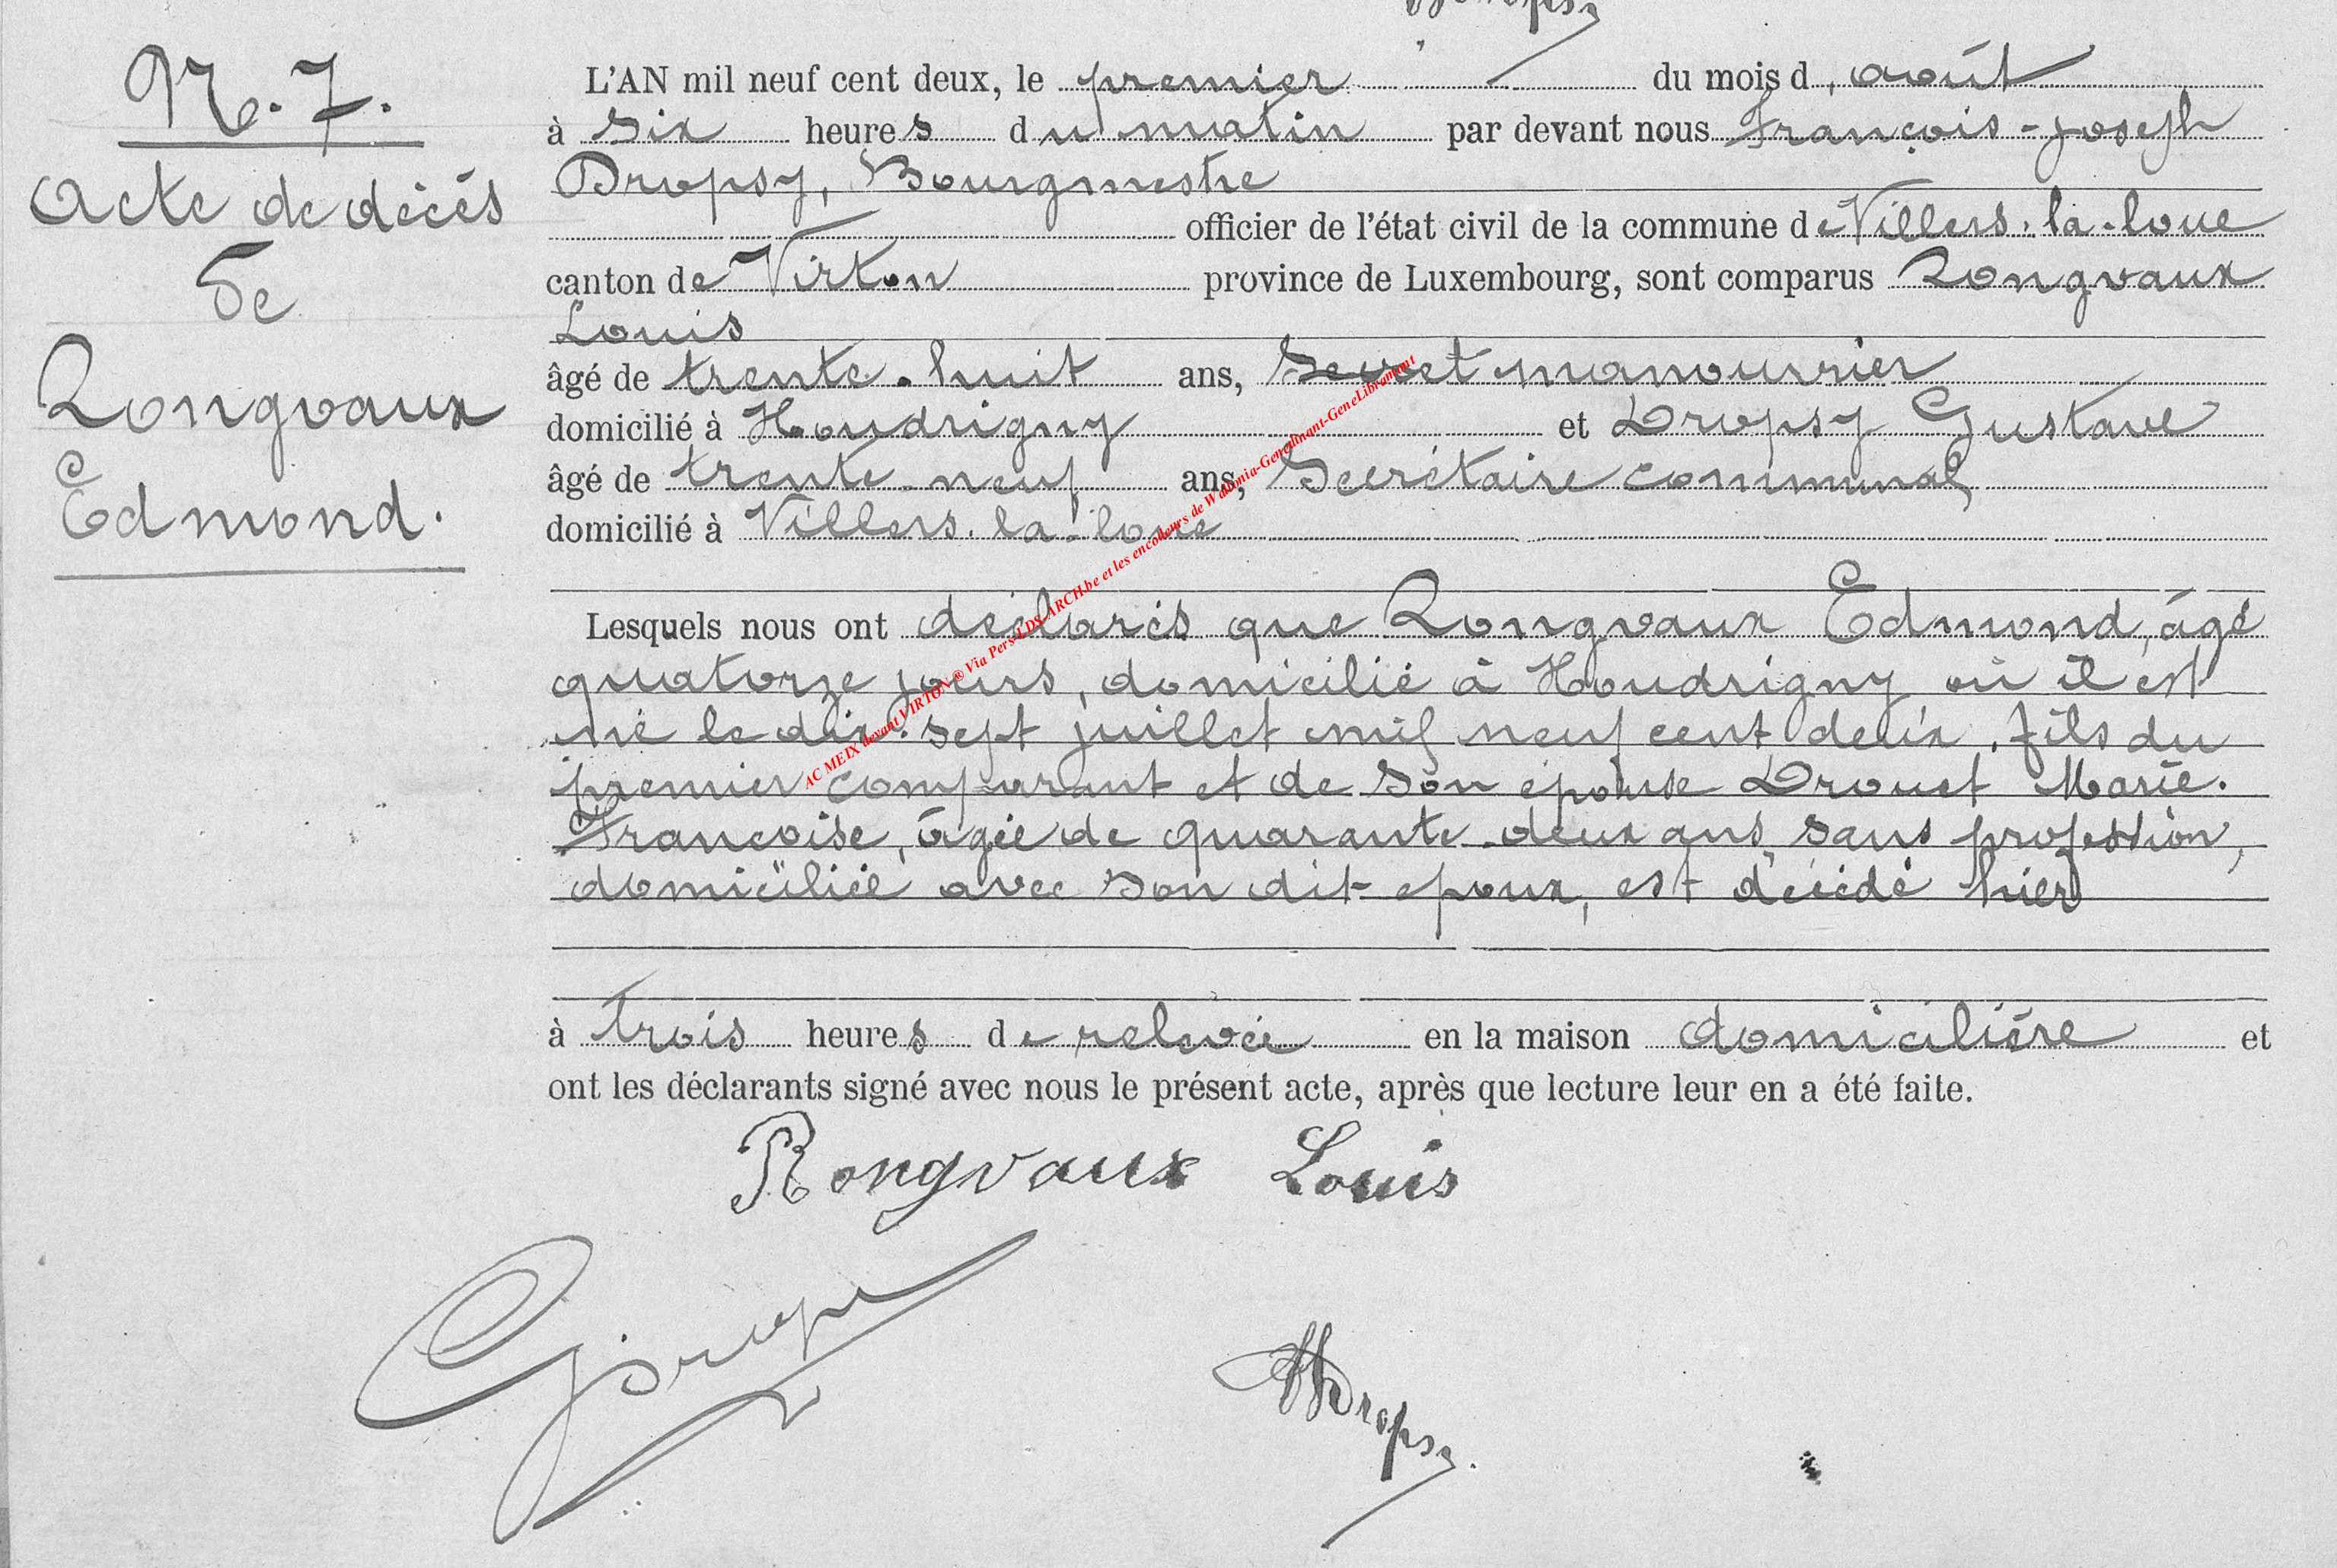 N°. 7.
Acte de décès
De
Rongvaux
Edmond.
L'AN mil neuf cent deux, le premier du mois d'août
à six heures du matin par devant nous François-Joseph
Dropsy, Bourgmestre
officier de l'état civil de la commune de Villers-la-loue
canton de Virton province de Luxembourg, sont comparus Rongvaux
Louis
âgé de trente-huit ans, manouvrier
domicilié à Houdrigny et Dropsy Gustave
âgé de trente-neuf ans, Secrétaire communal
domicilié à Villers-la-loue
Lesquels nous ont déclarés que Rongvaux Edmond, âgé
quatorze jours, domicilié à Houdrigny où il est
né le dix-sept juillet mil neuf cent deux, fils du
premier comparant et de son épouse Drouet Marie-
Françoise, âgée de quarante-deux ans, sans profession,
domiciliée avec son dit époux, est décédé hier
à trois heures de relevée en la maison domicilière et
ont les déclarants signé avec nous le présent acte, après que lecture leur en a été faite.
Rongvaux Louis
Dropsy
AC MEIX devant VIRTON ® Via Pers-LDS-ARCH.be et les encodeurs de Wallonia-Genealinant-GeneLibramont